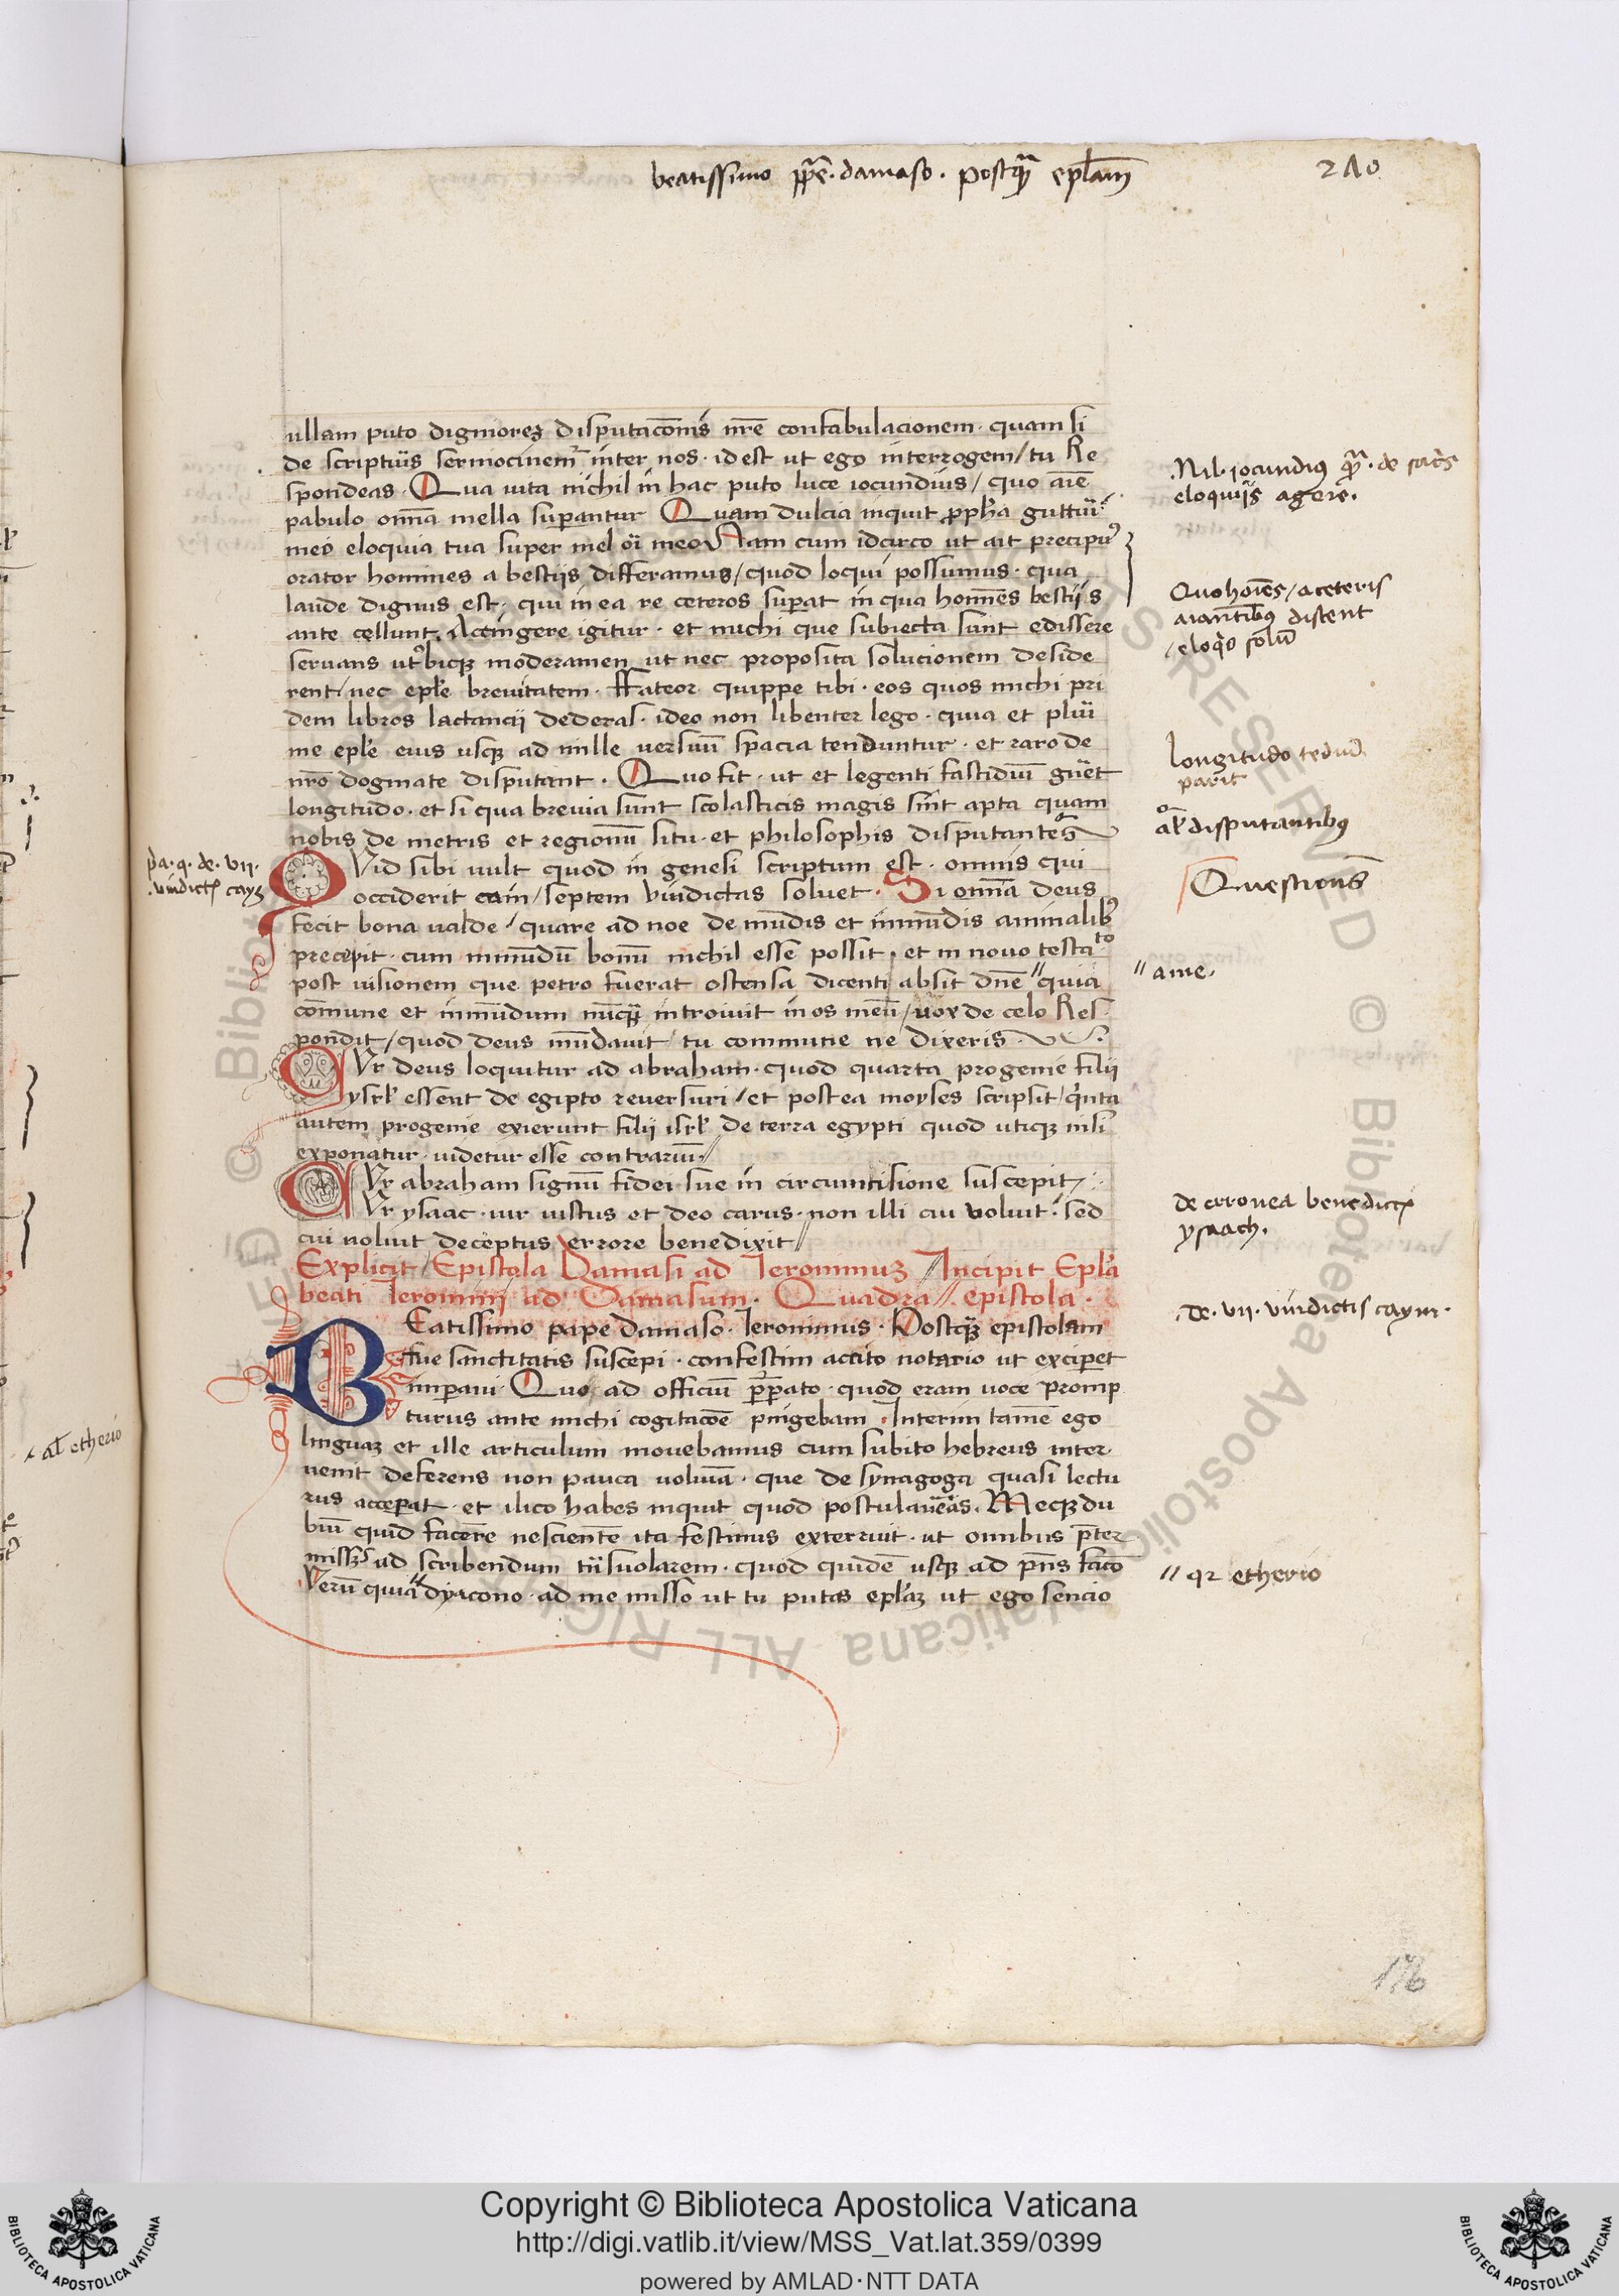 beatissimo pp̄e · damaso · postq̄ȝ ep̄lam
210
ullam puto digniorez disputac̄onis nr̄e confabulacionem · quam si
de scripturis sermocinemur inter nos · id est ut ego interrogem / tu Re
spondeas · Qua vita nichil in hac puto luce iocundius / quo aīe
pabulo om̄a mella superantur Quam dulcia inquit ꝓph̄a gutturi
meo eloquia tua super mel ori meo Nam cum idcirco ut ait precipuꝰ
orator homines a bestijs differamus / quod loqui possumus · qua
laude dignus est · qui in ea re ceteros superat in qua homīes bestijs
ante cellunt · Accingere igitur · et michi que subiecta sunt edissere
servans utrobiqȝ moderamen ut nec proposita solucionem deside
rent / nec ep̄le brevitatem · Ffateor quippe tibi · eos quos michi pri
dem libros lactancij dederas · ideo non libenter lego · quia et pluri
me ep̄le eius usqȝ ad mille versuū spacia tenduntur · et raro de
nr̄o dogmate disputant · Quo fit · ut et legenti fastidiū gn̄et
longitudo · et si qua brevia sunt scolasticis magis sint apta quam
nobis de metris et regionū situ · et philosophis disputantes
QVid sibi vult quod in genesi scriptum est · omnis qui
occiderit cain / septem vindictas solvet · Si om̄ia deus
fecit bona valde / quare ad noe de mūdis et inmūdis animalibꝰ
precepit · cum inmūdū bonū nichil esse possit · et in novo testato
post visionem que petro fuerat ostensa dicenti absit dn̄e // quia
cōmune et inmūdum nūq̄ȝ introivit in os meū / vox de celo Res
pondit / quod deus mūdavit / tu commune ne dixeris ·
CVr deus loquitur ad abraham · quod quarta progenie filii
ysrl̄ essent de egipto reversuri / et postea moyses scripsit / qⁱnta
autem progenie exierunt filii isrl̄ de terra egypti quod utiqȝ nisi
exponatur · videtur esse contrariū · //
CVr abraham signū fidei sue in circumcisione suscepit /
Vr ysaac · vir iustus et deo carus · non illi cui voluit · sed
cui noluit deceptus errore benedixit //
Explicit / Epistola Damasi ad Ieronimuȝ // Incipit Epl̄a
beati Ieronimj ad Damasum · Quadra // epistola ·
BEatissimo pape damaso · Ieronimus · Postqȝ epistolam
tue sanctitatis suscepi · confestim accito notario ut exciperet
imperavi · Quo ad officiū p̄parato · quod eram voce promp
turus ante michi cogitacōe pingebam · Interim tamē ego
linguaȝ et ille articulum movebamus cum subito hebreus inter
venit deferens non pauca volumīa · que de synagoga quasi lectu
rus acceperat · et ilico habes inquit quod postulaveras · Meqȝ du
biū quid facere nescientē ita festinus exterruit · ut omnibus p̄ter
missis ad scribendum transvolarem · quod quidē usqȝ ad p̄ns facio
Verū quia // dyacono · ad me misso ut tu putas ep̄laȝ ut ego sencio
.Nil · iocundiꝰ q̄ȝ · de sacris
eloquijs agere.
Quo hoīes / a ceteris
aīantibꝰ distent
/ eloqⁱo solū
longitudo tediū
parit
al̄ disputantibꝰ
Questiones
// a me.
de erronea benedictōe
ysaach.
.de · vii · vindictis cayin ·
// qz etherio
p̄a · q · de · vii ·
.vindictis cayȝ
al̄ etherio
176
Copyright © Biblioteca Apostolica Vaticana
http://digi.vatlib.it/view/MSS_Vat.lat.359/0399
powered by AMLAD·NTT DATA
BIBLIOTECA APOSTOLICA VATICANA
BIBLIOTECA APOSTOLICA VATICANA